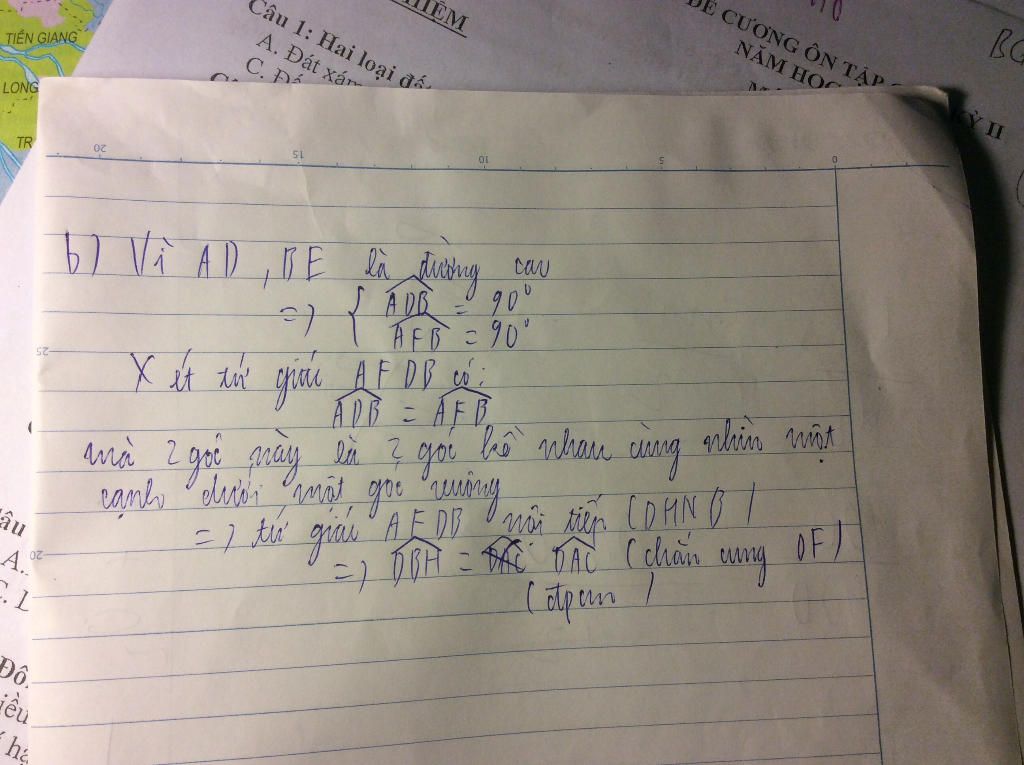 TIỀN GIANG
LONG
TR
HIỆM
Câu 1: Hai loại đất
A. Đất xám
C. Đấ
ĐỀ CƯƠNG ÔN TẬP
KỲ II
NĂM HỌC
BG
20 15 10 5 0
b) Vì AD, BE là đường cao
=> { ADB = 90°
AFB = 90°
25
Xét tứ giác AFDB có:
ADB = AFB
mà 2 góc này là 2 góc kề nhau cùng nhìn một
cạnh dưới một góc vuông
=> tứ giác AFDB nội tiếp (DHNB)
20
=> DBH = DAC DAC (chắn cung DF)
(đpcm)
âu
A.
C. L
Đô
iều
í hạ